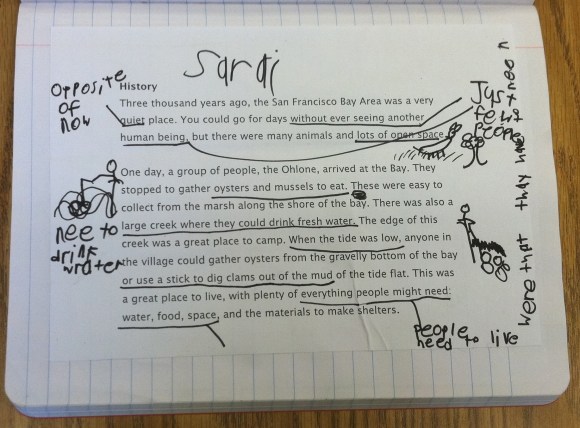 Sarai
History
Three thousand years ago, the San Francisco Bay Area was a very
quiet place. You could go for days without ever seeing another
human being, but there were many animals and lots of open space.
One day, a group of people, the Ohlone, arrived at the Bay. They
stopped to gather oysters and mussels to eat. These were easy to
collect from the marsh along the shore of the bay. There was also a
large creek where they could drink fresh water. The edge of this
creek was a great place to camp. When the tide was low, anyone in
the village could gather oysters from the gravelly bottom of the bay
or use a stick to dig clams out of the mud of the tide flat. This was
a great place to live, with plenty of everything people might need:
water, food, space, and the materials to make shelters.
Opposite
of
now
nee to
drink
wrater
Jyst
few
People
people
need to live
were that thay have